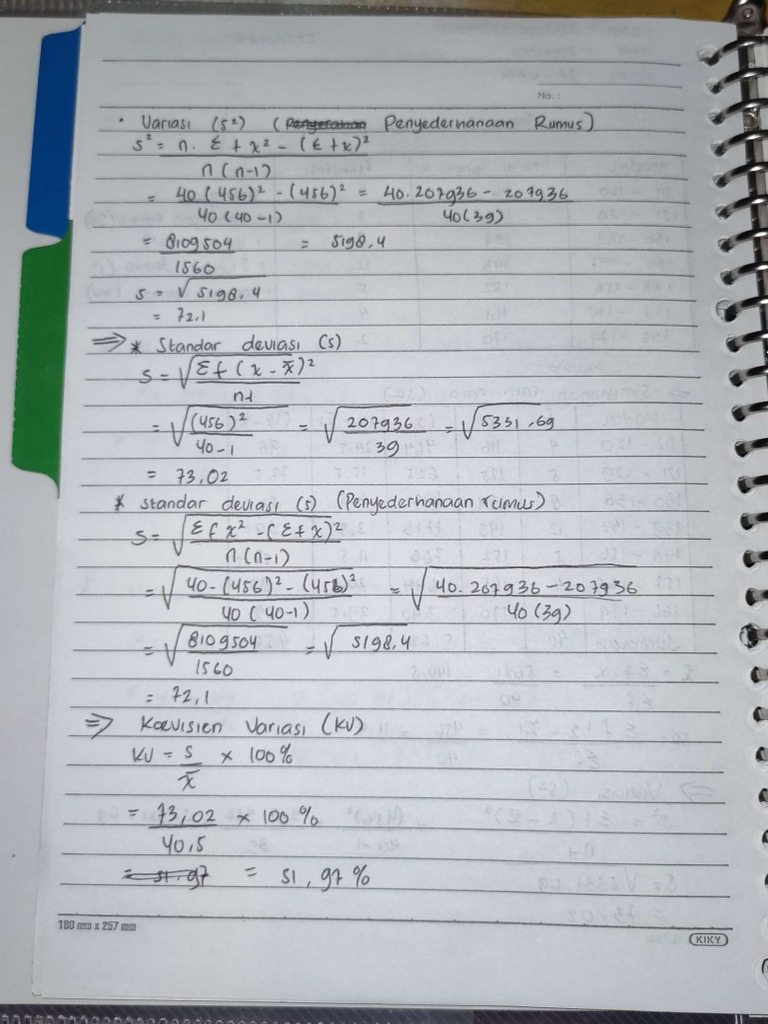 No.:
• Variasi (s²) (Penyeraban Penyederhanaan Rumus)
s² = n. Σ f x² - (Σ f x)²
n (n-1)
= 40 (456)² - (456)² = 40. 207936 - 207936
40 (40-1) 40 (39)
= 8109504 = 5198,4
1560
s = √5198,4
= 72,1
⇒ * Standar deviasi (s)
s = √Σ f (x - x̄)²
n-1
= √(456)² = √207936 = √5331,69
40-1 39
= 73,02
* Standar deviasi (s) (Penyederhanaan rumus)
s = √Σ f x² - (Σ f x)²
n (n-1)
= √40 - (456)² - (456)² = √40. 207936 - 207936
40 (40-1) 40 (39)
= √8109504 = √5198,4
1560
= 72,1
⇒ Koevisien Variasi (KV)
KV = s x 100%
x̄
= 73,02 x 100%
40,5
= 51,97 = 51,97%
180 mm x 257 mm
KIKY